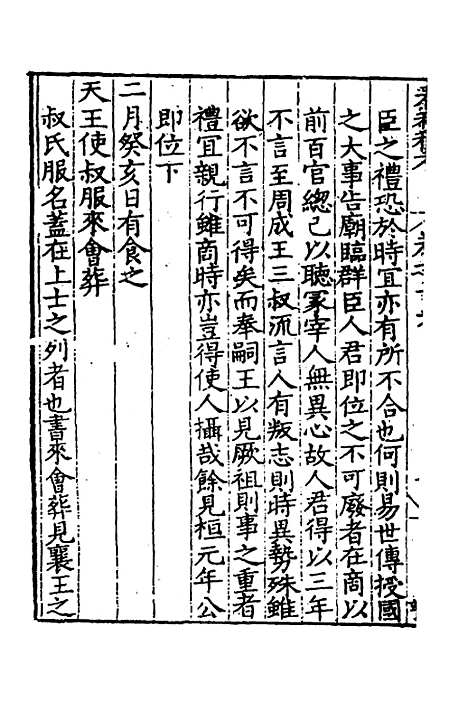 臣之禮恐於時宜亦有所不合也何則易世傳授國
之大事告廟臨群臣人君即位之不可廢者在商以
前百官總己以聽冢宰人無異心故人君得以三年
不言至周成王三叔流言人有叛志則時異勢殊雖
欲不言不可得矣而奉嗣王以見厥祖則事之重者
禮宜親行雖商時亦豈得使人攝哉餘見桓元年公
即位下
二月癸亥日有食之
天王使叔服來會葬
叔氏服名蓋在上士之列者也書來會葬見襄王之